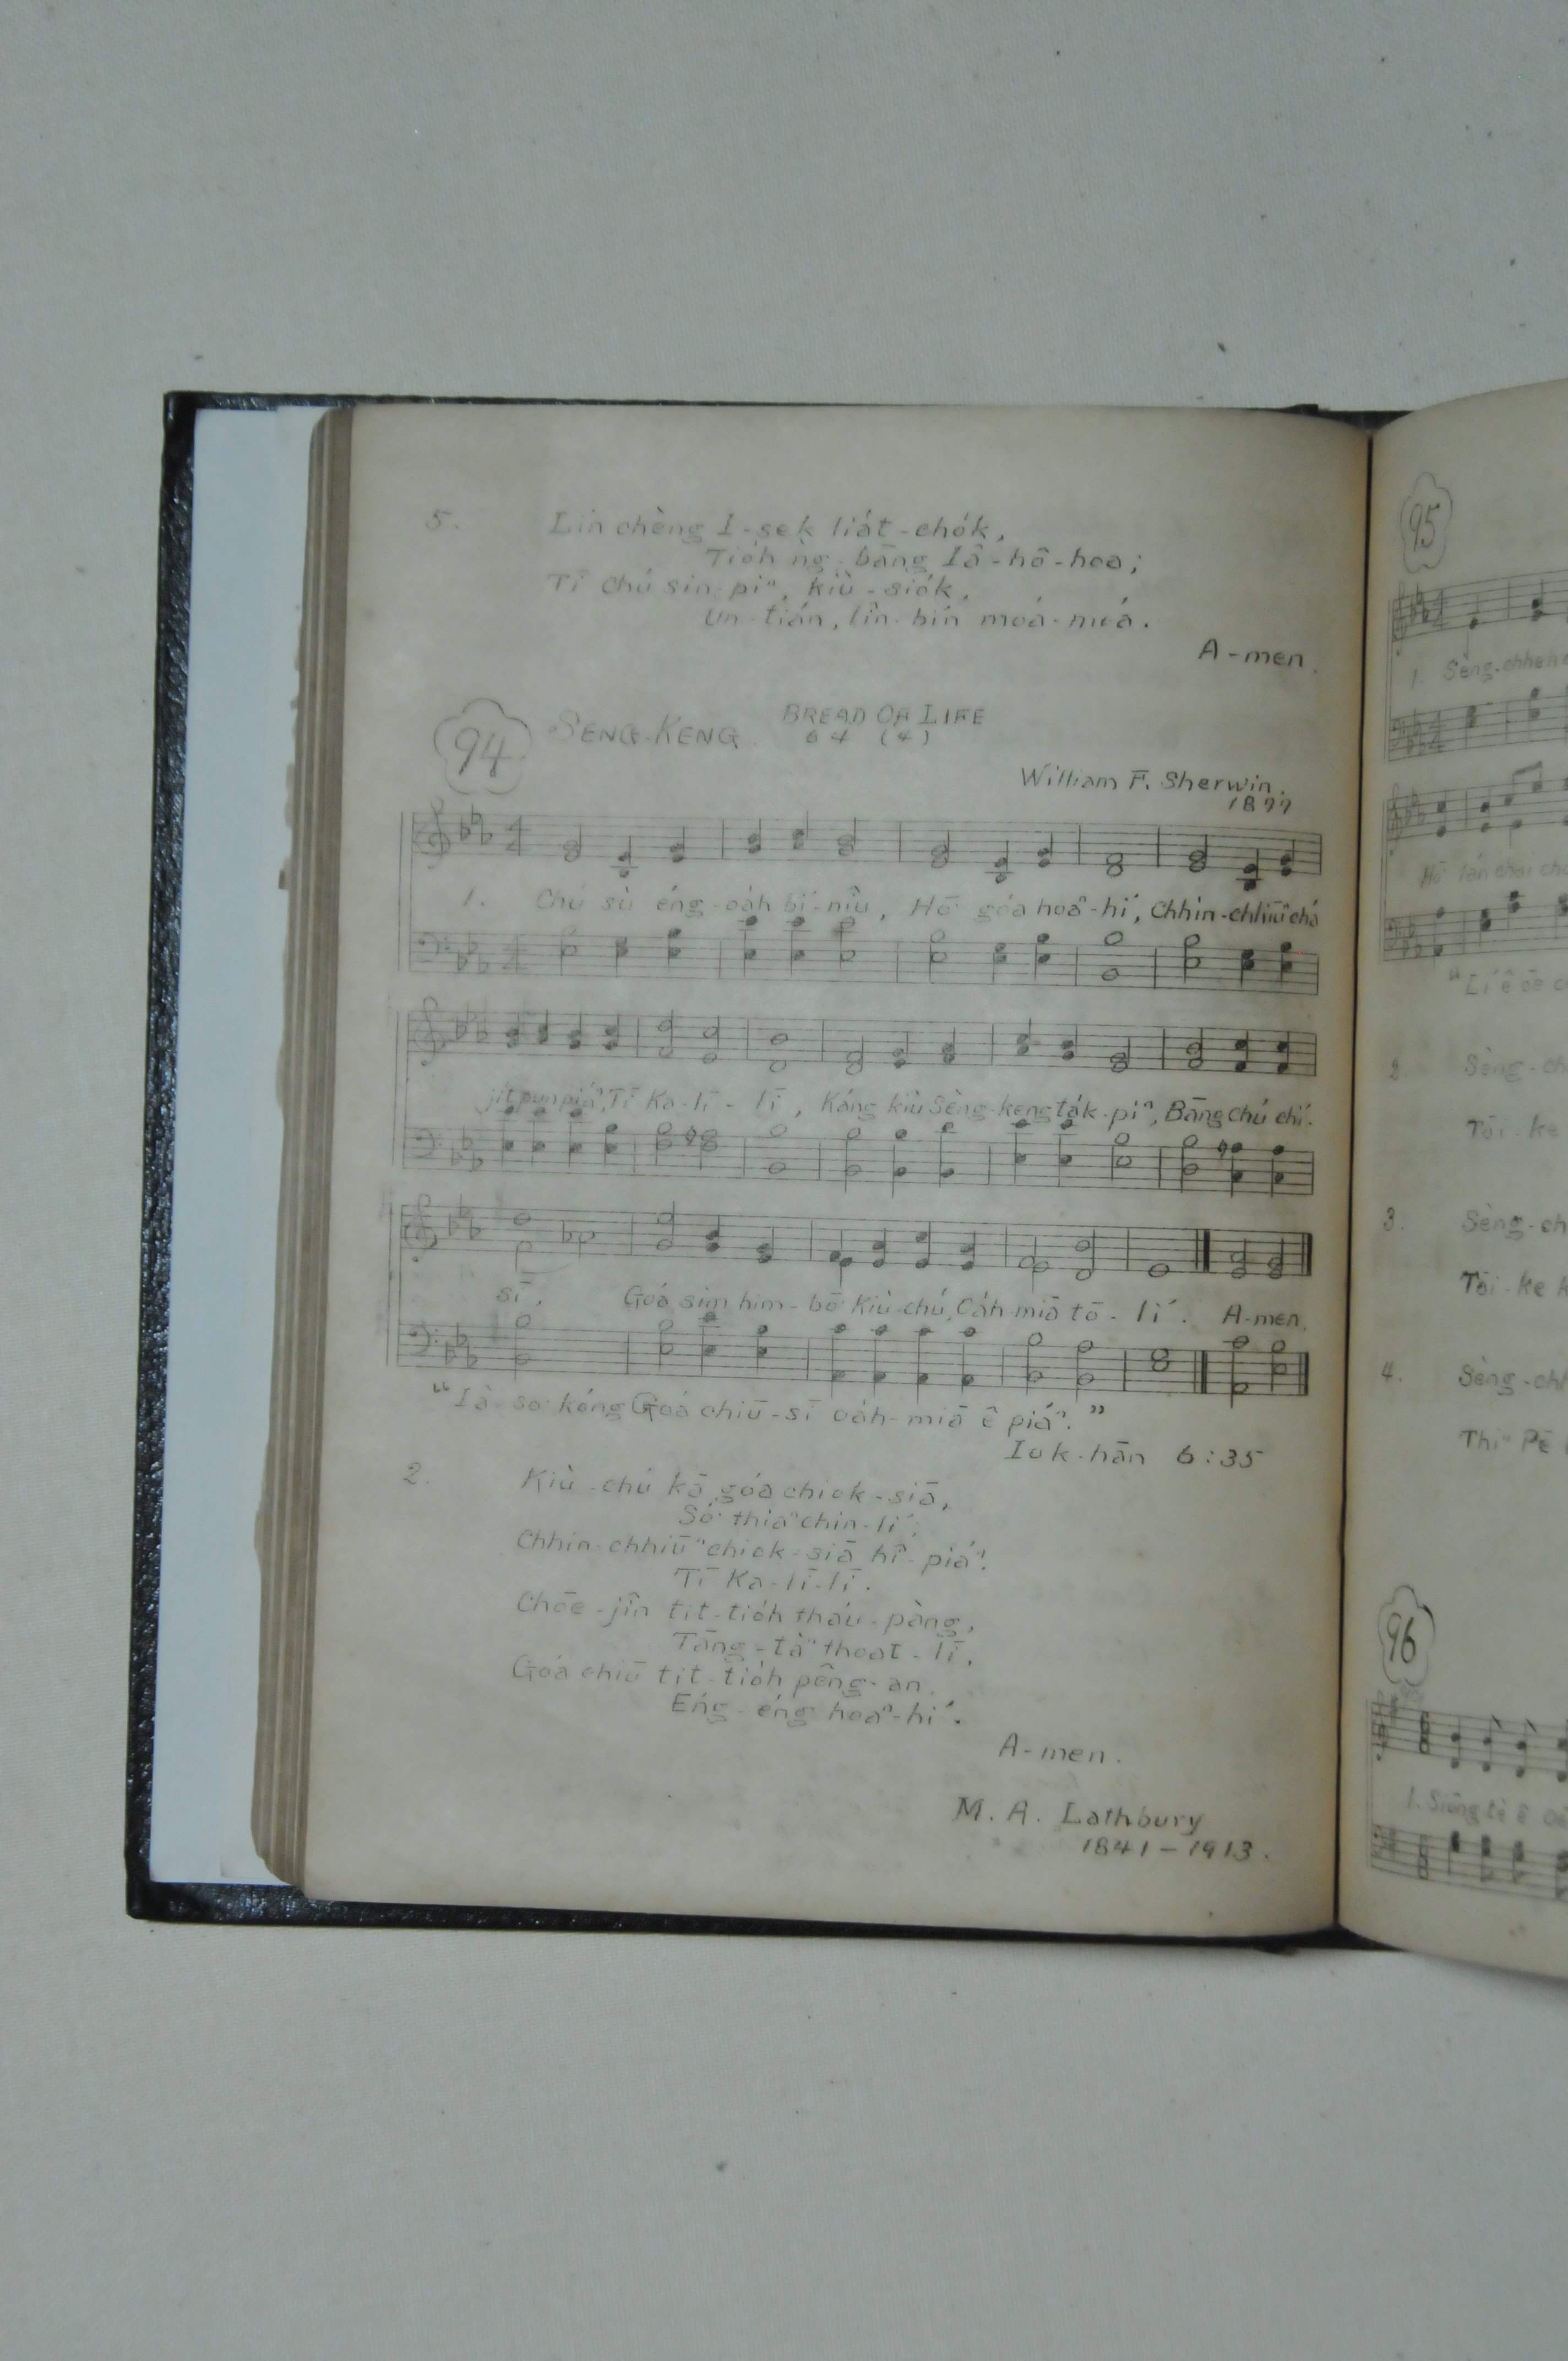 5. Lín chèng Í-sek liát-chók,
Tióh ǹg-bāng Iâ-hô-hoa;
Tī Chú sin-piⁿ, kiû-siók,
Un-tián, lîn-bín moá-moá.
A-men.
94 SÈNG-KENG. BREAD OF LIFE
64 (4)
William F. Sherwin.
1877
1. Chú sù éng-oáh bí-niû, Hō͘ góa hoaⁿ-hí, Chhin-chhiūⁿ chá
jit pun piáⁿ, Tī Ka-lī-lī, Káng kiù Sèng-keng ták-piⁿ, Bāng Chú chí-
sī, Góa sim him-bō͘ Kiù-chú, Oáh-miā tō-lí. A-men.
"Iâ-so͘ kóng Góa chiū-sī oáh-miā ê piáⁿ."
Iok-hān 6:35
2. Kiù-chú kā góa chiok-siā,
Só͘ thiaⁿ chin-lí;
Chhin-chhiūⁿ chiok-siā hî-piáⁿ.
Tī Ka-lī-lī.
Chōe-jîn tit-tióh tháu-pàng,
Tāng-tàⁿ thoat-lī,
Góa chiū tit-tióh pêng-an,
Éng-éng hoaⁿ-hí.
A-men.
M. A. Lathbury
1841-1913.
95
1. Sèng-chhen
Hō͘
"Lí ê ōe
2 Sèng-ch
Tōi-ke
3. Sèng-ch
Tōi-ke k
4. Sèng-chh
Thiⁿ Pē
96
1. Siōng tè ê